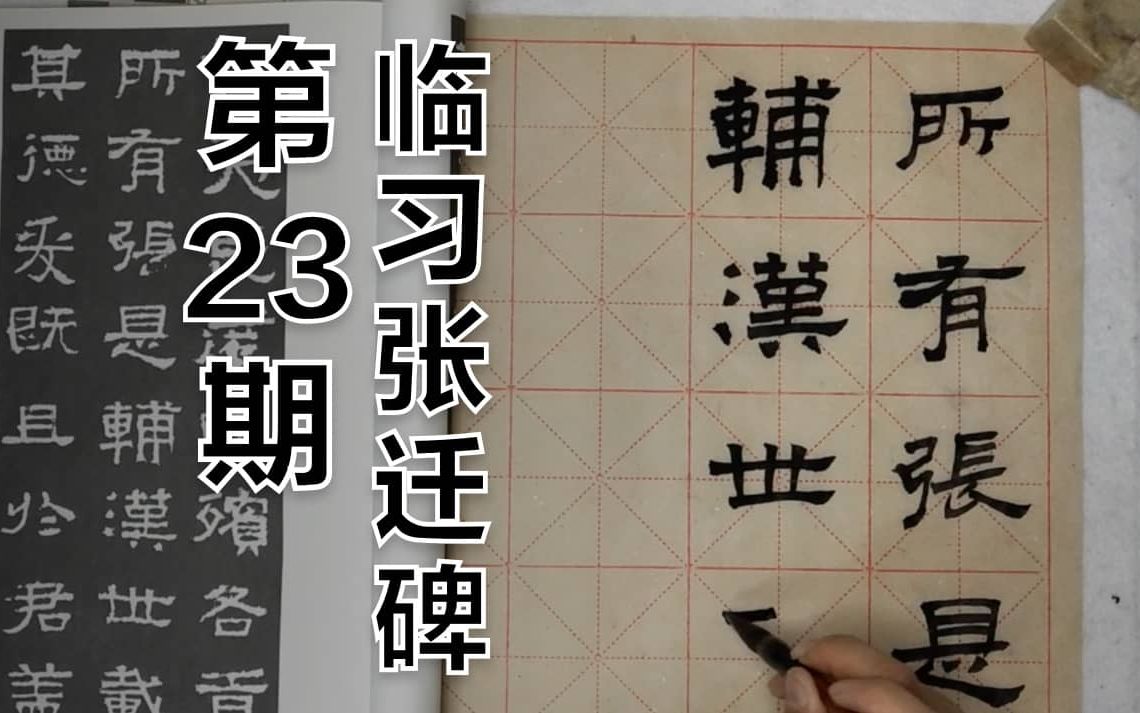 临习张迁碑
第23期
所有張是
輔漢世
殯各貢
所有張是輔漢世載
其德爰既且於君蓋